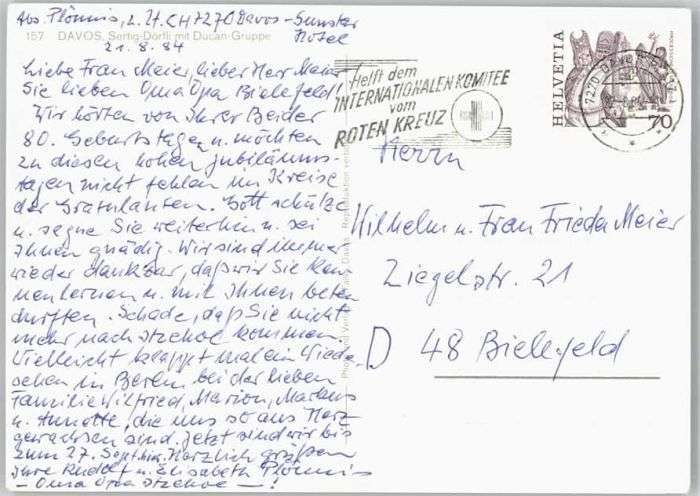 Abs. Plönnis, z. Zt. CH 7270 Davos-Sunstar
Hotel
157 DAVOS, Sertig-Dörfli mit Ducan-Gruppe
21.8.84
Liebe Frau Meier, lieber Herr Meier
Sie lieben Oma Opa Bielefeld!
Wir hörten von Ihrer Beider
80. Geburtstagen u. möchten
zu diesen hohen Jubiläums-
tagen nicht fehlen im Kreise
der Gratulanten. Gott schütze
u. segne Sie weiterhin u. sei
Ihnen gnädig. Wir sind immer
wieder dankbar, daß wir Sie ken
nenlernen u. mit Ihnen beten
durften. Schade, daß Sie nicht
mehr nach Itzehoe kommen.
Vielleicht klappt mal ein Wieder
sehen in Berlin bei der lieben
Familie Wilfried, Marion, Markus
u. Annette, die uns so ans Herz
gewachsen sind. Jetzt sind wir bis
zum 27. Sept. hier. Herzlich grüßen
Ihre Rudolf u. Elisabeth Plönnis
- Oma Opa Itzehoe - !
Helft dem
INTERNATIONALEN KOMITEE
vom
ROTEN KREUZ
HELVETIA
70
7270 DAVOS
Herrn
Wilhelm u. Frau Frieda Meier
Ziegelstr. 21
D 48 Bielefeld